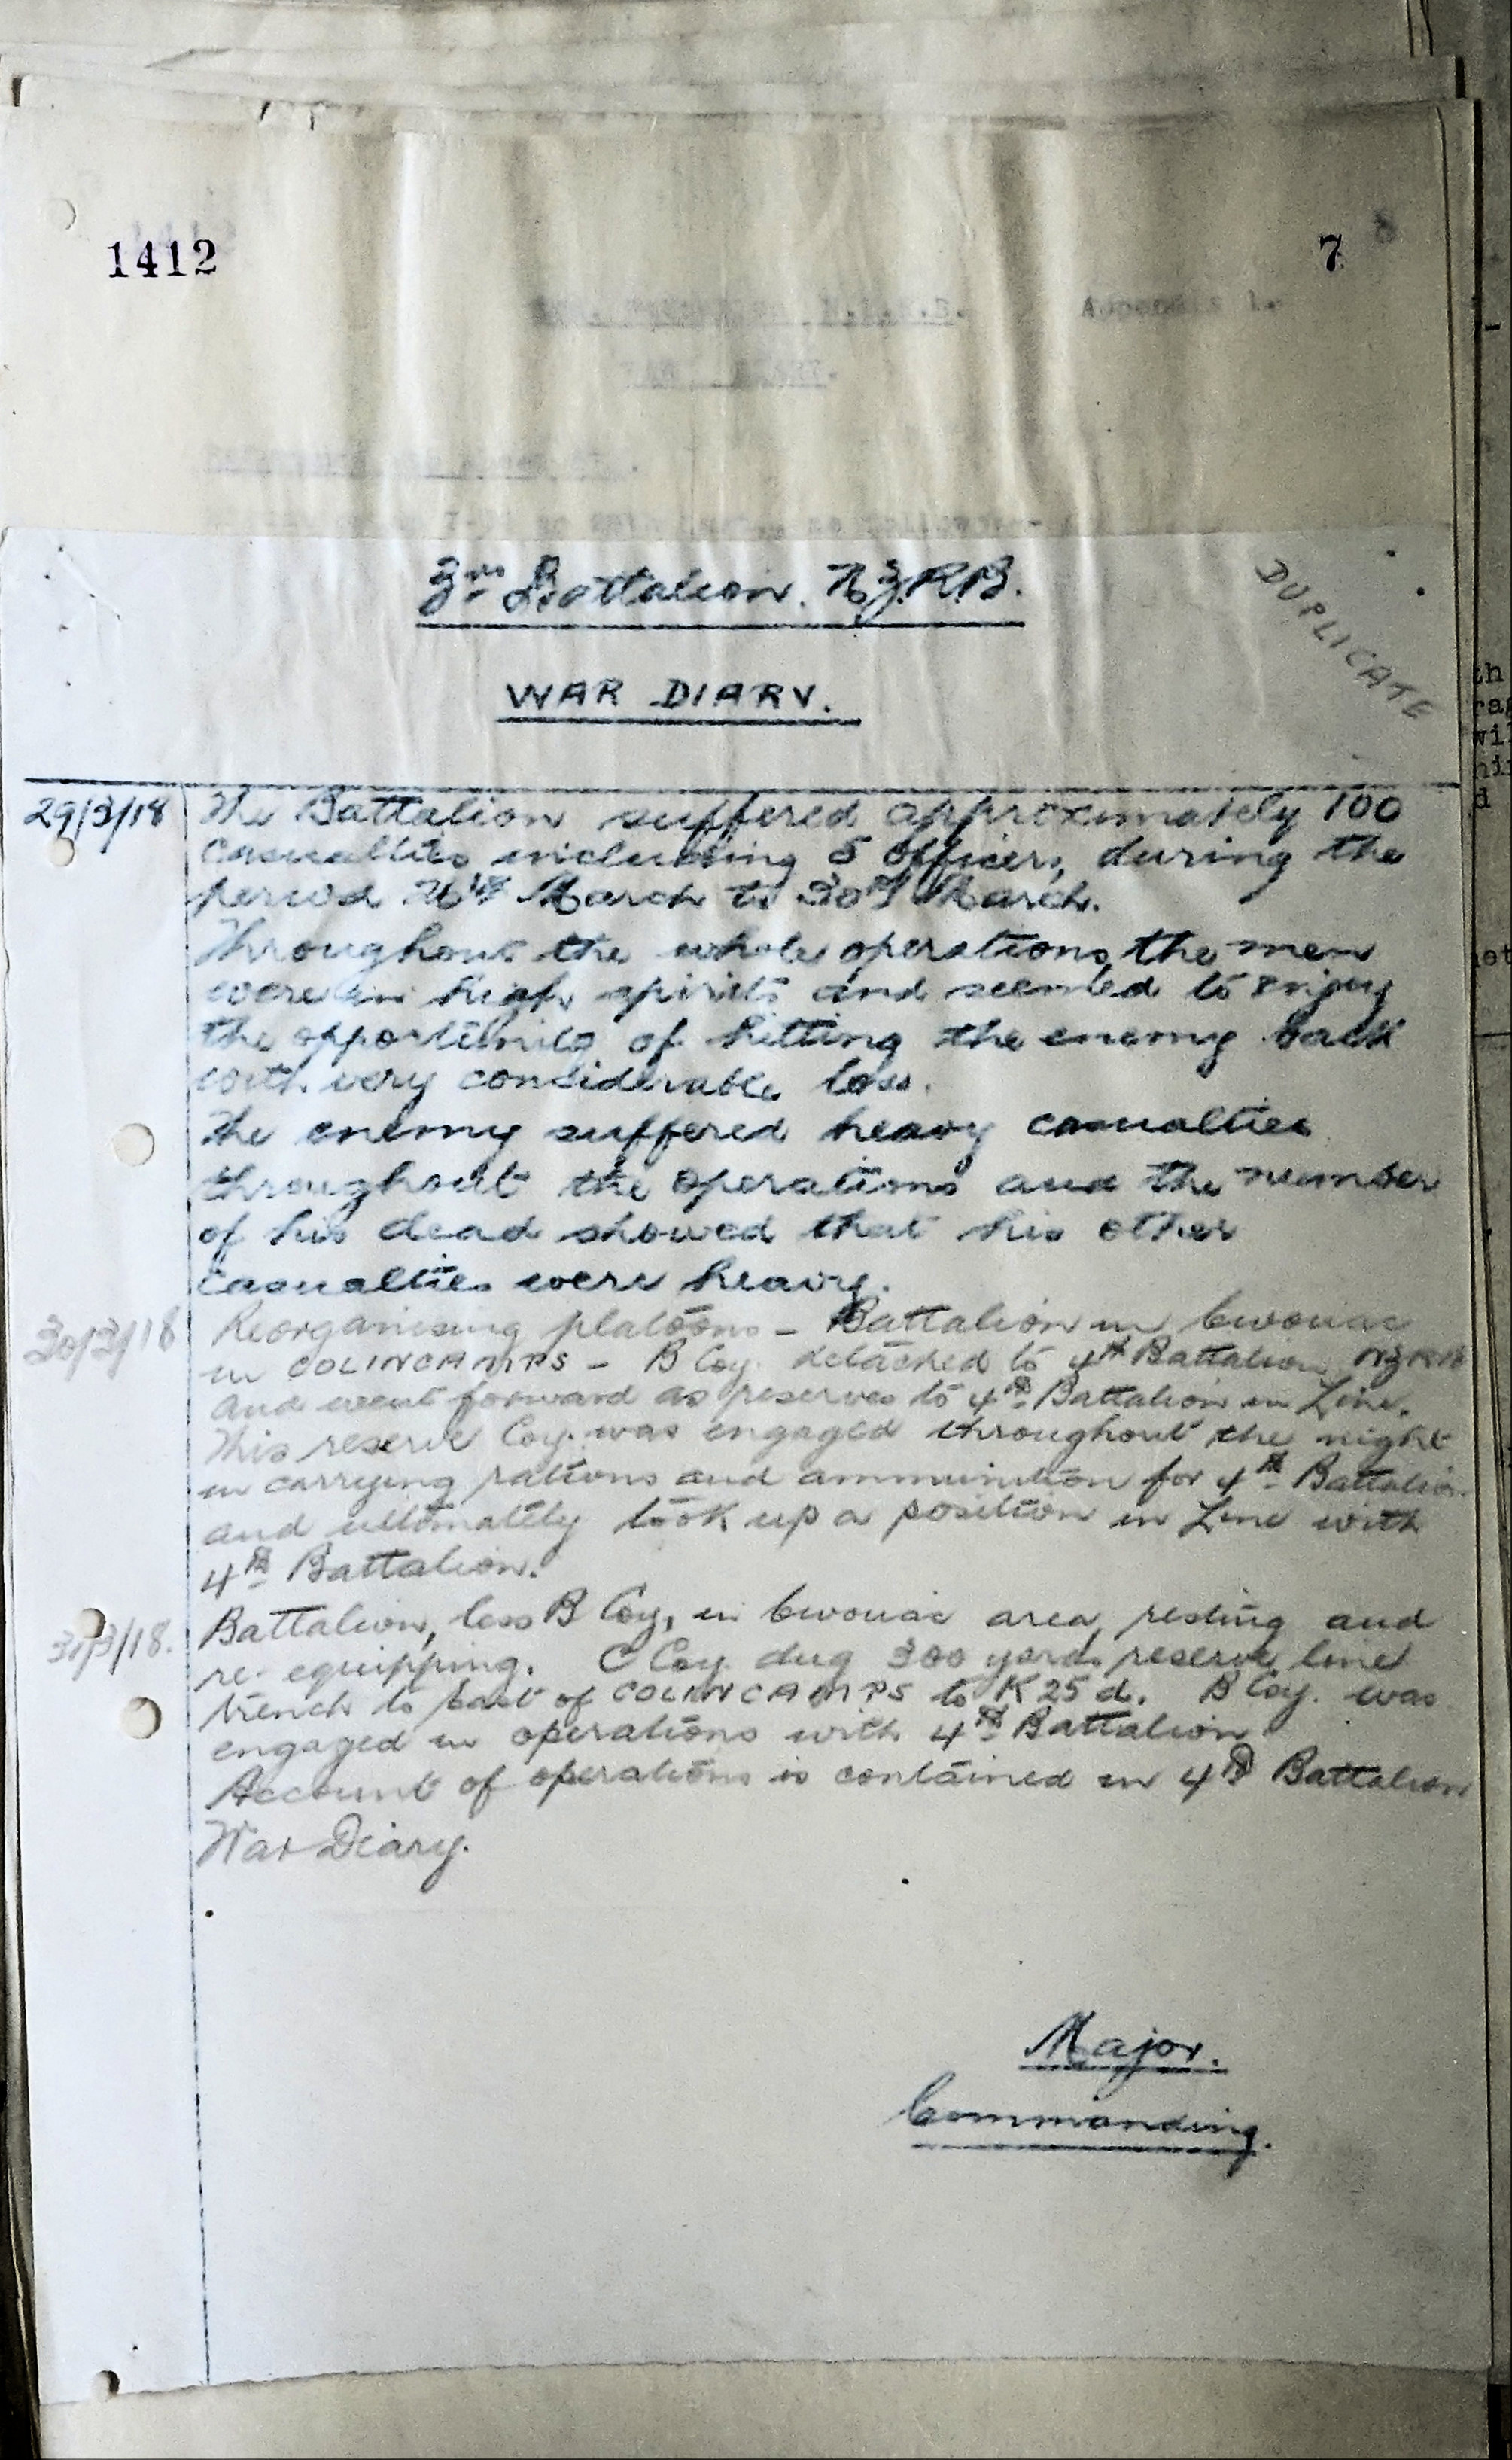 1412
7
Appendix 1.
3rd Battalion. N.Z.R.B.
DUPLICATE
WAR DIARY.
29/3/18 The Battalion suffered approximately 100
casualties including 5 officers, during the
period 26th March to 30th March.
Throughout the whole operations, the men
were in high spirits and seemed to enjoy
the opportunity of hitting the enemy back
with very considerable loss.
The enemy suffered heavy casualties
throughout the operations and the number
of his dead showed that his other
casualties were heavy.
30/3/18 Reorganising platoons – Battalion in bivouac
in COLINCAMPS – B Coy. detached to 4th Battalion NZRB
and went forward as reserves to 4th Battalion in Line.
This reserve Coy. was engaged throughout the night
in carrying rations and ammunition for 4th Battalion
and ultimately took up a position in Line with
4th Battalion.
31/3/18. Battalion, less B Coy, in bivouac area, resting and
re-equipping. C Coy. dug 300 yards reserve line
trench to East of COLINCAMPS to K 25 d. B Coy. was
engaged in operations with 4th Battalion
Account of operations is contained in 4th Battalion
War Diary.
Major.
Commanding.